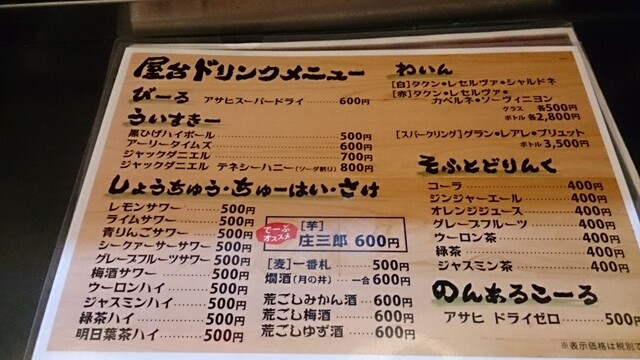 屋台ドリンクメニュー
びーる アサヒスーパードライ 600円
ういすきー
黒ひげハイボール 500円
アーリータイムズ 600円
ジャックダニエル 700円
ジャックダニエル テネシーハニー(ソーダ割り) 800円
しょうちゅう・ちゅーはい・さけ
レモンサワー 500円
ライムサワー 500円
青りんごサワー 500円
シークァーサーサワー 500円
グレープフルーツサワー 500円
梅酒サワー 500円
ウーロンハイ 500円
ジャスミンハイ 500円
緑茶ハイ 500円
明日葉茶ハイ 500円
オススメ
[芋]
庄三郎 600円
[麦]一番札 500円
燗酒(月の井) 一合600円
荒ごしみかん酒 600円
荒ごし梅酒 600円
荒ごしゆず酒 600円
わいん
[白]タクン•レセルヴァ•シャルドネ
[赤]タクン•レセルヴァ•
カベルネ•ソーヴィニヨン
グラス 各500円
ボトル 各2,800円
[スパークリング]グラン•レアレ•ブリュット
ボトル 3,500円
そふとどりんく
コーラ 400円
ジンジャーエール 400円
オレンジジュース 400円
グレープフルーツ 400円
ウーロン茶 400円
緑茶 400円
ジャスミン茶 400円
のんあるこーる
アサヒ ドライゼロ 500円
※表示価格は税別で